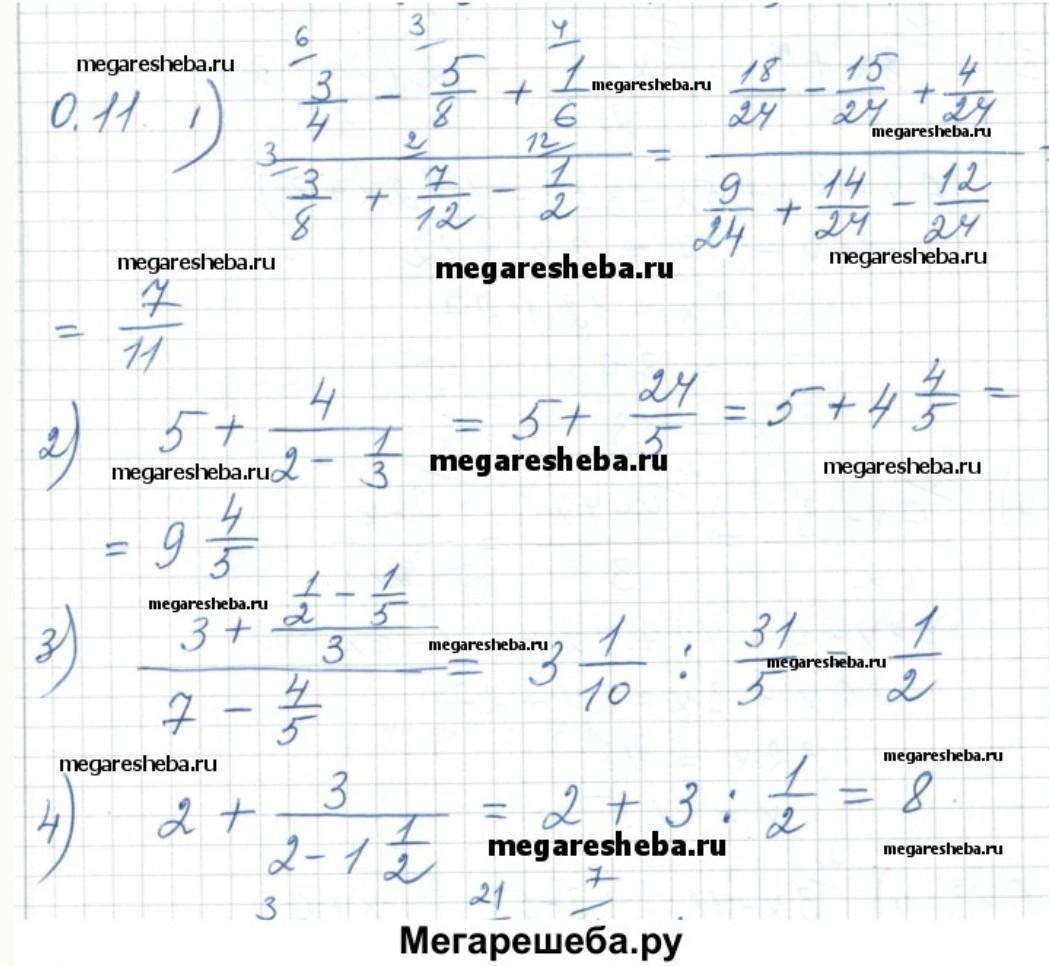 6 3 4
megaresheba.ru
0.11. 1) (3/4 - 5/8 + 1/6) / (3/8 + 7/12 - 1/2) = (18/24 - 15/24 + 4/24) / (9/24 + 14/24 - 12/24)
megaresheba.ru
megaresheba.ru
3 2 12
megaresheba.ru megaresheba.ru megaresheba.ru
= 7/11
2) 5 + 4/(2 - 1/3) = 5 + 24/5 = 5 + 4 4/5 =
megaresheba.ru megaresheba.ru megaresheba.ru
= 9 4/5
megaresheba.ru
3) (3 + (1/2 - 1/5)/3) / (7 - 4/5) = 3 1/10 : 31/5 = 1/2
megaresheba.ru
megaresheba.ru
megaresheba.ru megaresheba.ru
4) 2 + 3/(2 - 1 1/2) = 2 + 3 : 1/2 = 8
megaresheba.ru megaresheba.ru
3 21 7
Мегарешеба.ру